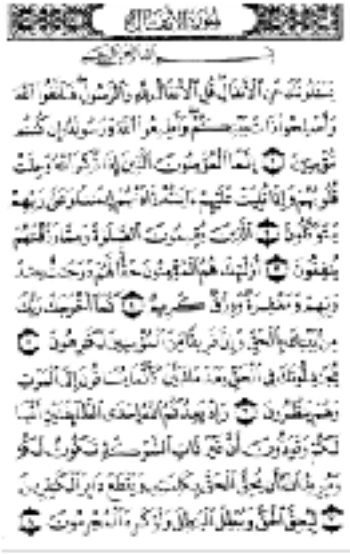 سورة الأنفال
بسم الله الرحمن الرحيم
يسألونك عن الأنفال قل الأنفال لله والرسول فاتقوا الله
وأصلحوا ذات بينكم وأطيعوا الله ورسوله إن كنتم
مؤمنين ١ إنما المؤمنون الذين إذا ذكر الله وجلت
قلوبهم وإذا تليت عليهم آياته زادتهم إيمانا وعلى ربهم
يتوكلون ٢ الذين يقيمون الصلوة ومما رزقنهم
ينفقون ٣ أولئك هم المؤمنون حقا لهم درجت عند
ربهم ومغفرة ورزق كريم ٤ كما أخرجك ربك
من بيتك بالحق وإن فريقا من المؤمنين لكرهون ٥
يجدلونك في الحق بعد ما تبين كأنما يساقون إلى الموت
وهم ينظرون ٦ وإذ يعدكم الله إحدى الطائفتين أنها
لكم وتودون أن غير ذات الشوكة تكون لكم
ويريد الله أن يحق الحق بكلمته ويقطع دابر الكفرين
٧ ليحق الحق ويبطل البطل ولو كره المجرمون ٨